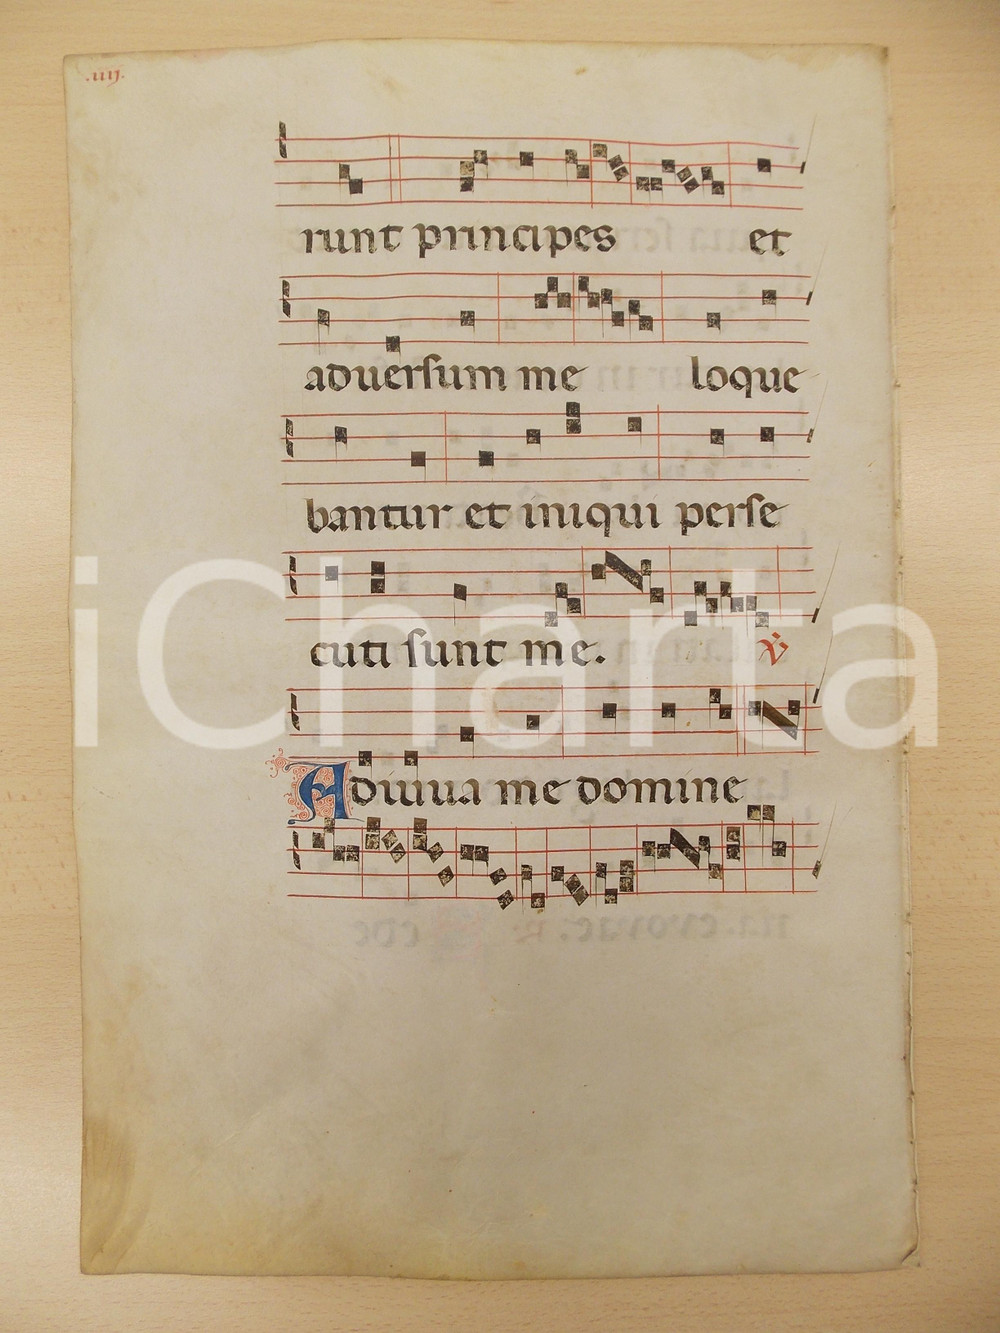 .iiij.
runt principes et
aduersum me loque
bantur et iniqui perse
cuti sunt me. ℣
Adiuua me domine
iCharta